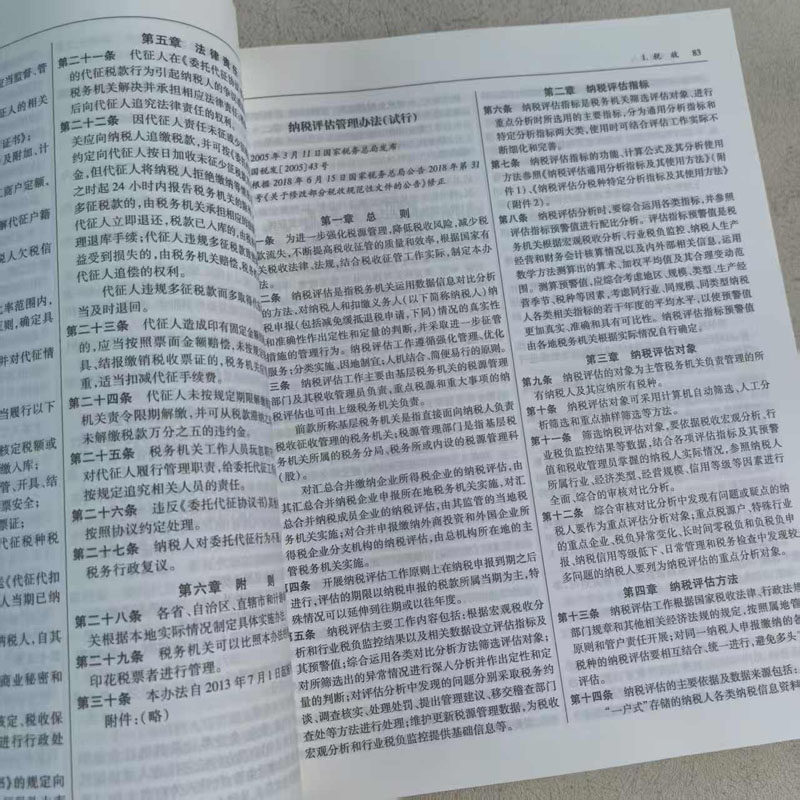 应当监督、管
征人的相关
证书》;
及附加、计
工商户定额,
解代征户籍
税人欠税信
比率范围内,
原则,确定具
并对代征情
当履行以下
核定税额或
缴入库;
管、开具、结
票安全;
票证;
代征税种税
《代征代扣
人当期已纳
纳税人,自其
商业秘密和
核定、税收保
进行行政处
书》的规定向
第五章 法律责
第二十一条 代征人在《委托代征协
的代征税款行为引起纳税人的争议
税务机关解决并承担相应法律责任
后向代征人追究法律责任的权利。
第二十二条 因代征人责任未征或少征
关应向纳税人追缴税款,并可按《委
约定向代征人按日加收未征少征税款
金,但代征人将纳税人拒绝缴纳等情
之时起 24 小时内报告税务机关的除
的,由税务机关承担相应的
代征人立即退还,税款已入库的,由
理退库手续;代征人违规多征税款
益受到损失的,由税务机关赔偿,税
代征人追偿的权利。
代征人违规多征税款而多取得
当及时退回。
第二十三条 代征人造成印有固定金额
的,应当按照票面金额赔偿,未按规
具、结报缴销税收票证的,税务机关应
重,适当扣减代征手续费。
第二十四条 代征人未按规定期限解缴
机关责令限期解缴,并可从税款滞纳
未解缴税款万分之五的违约金。
第二十五条 税务机关工作人员玩忽
对代征人履行管理职责,给委托代征工
按规定追究相关人员的责任。
第二十六条 违反《委托代征协议书》其
按照协议约定处理。
第二十七条 纳税人对委托代征行为不
税务行政复议。
第六章 附 则
第二十八条 各省、自治区、直辖市和计
关根据本地实际情况制定具体实施办
第二十九条 税务机关可以比照本办法
印花税票者进行管理。
第三十条 本办法自 2013 年 7 月 1 日起
附件:(略)
1. 税 政 83
纳税评估管理办法(试行)
2005 年 3 月 11 日国家税务总局发布
国税发〔2005〕43 号
根据 2018 年 6 月 15 日国家税务总局公告 2018 年第 31
号《关于修改部分税收规范性文件的公告》修正
第一章 总 则
一条 为进一步强化税源管理,降低税收风险,减少税
款流失,不断提高税收征管的质量和效率,根据国家有
关税收法律、法规,结合税收征管工作实际,制定本办
法。
二条 纳税评估是指税务机关运用数据信息对比分析
的方法,对纳税人和扣缴义务人(以下简称纳税人)纳
税申报(包括减免缓抵退税申请,下同)情况的真实性
和准确性作出定性和定量的判断,并采取进一步征管
措施的管理行为。纳税评估工作遵循强化管理、优化
服务;分类实施、因地制宜;人机结合、简便易行的原则。
三条 纳税评估工作主要由基层税务机关的税源管理
部门及其税收管理员负责,重点税源和重大事项的纳
税评估也可由上级税务机关负责。
前款所称基层税务机关是指直接面向纳税人负责
税收征收管理的税务机关;税源管理部门是指基层税
务机关所属的税务分局、税务所或内设的税源管理科
(股)。
对汇总合并缴纳企业所得税企业的纳税评估,由
其汇总合并纳税企业申报所在地税务机关实施,对汇
总合并纳税成员企业的纳税评估,由其监管的当地税
务机关实施;对合并申报缴纳外商投资和外国企业所
得税企业分支机构的纳税评估,由总机构所在地的主
管税务机关实施。
四条 开展纳税评估工作原则上在纳税申报到期之后
进行,评估的期限以纳税申报的税款所属当期为主,特
殊情况可以延伸到往期或以往年度。
五条 纳税评估主要工作内容包括:根据宏观税收分
析和行业税负监控结果以及相关数据设立评估指标及
其预警值;综合运用各类对比分析方法筛选评估对象;
对所筛选出的异常情况进行深入分析并作出定性和定
量的判断;对评估分析中发现的问题分别采取税务约
谈、调查核实、处理处罚、提出管理建议、移交稽查部门
查处等方法进行处理;维护更新税源管理数据,为税收
宏观分析和行业税负监控提供基础信息等。
第二章 纳税评估指标
第六条 纳税评估指标是税务机关筛选评估对象、进行
重点分析时所选用的主要指标,分为通用分析指标和
特定分析指标两大类,使用时可结合评估工作实际不
断细化和完善。
第七条 纳税评估指标的功能、计算公式及其分析使用
方法参照《纳税评估通用分析指标及其使用方法》(附
件 1)、《纳税评估分税种特定分析指标及其使用方法》
(附件 2)。
第八条 纳税评估分析时,要综合运用各类指标,并参照
评估指标预警值进行配比分析。评估指标预警值是税
务机关根据宏观税收分析、行业税负监控、纳税人生产
经营和财务会计核算情况以及内外部相关信息,运用
数学方法测算出的算术、加权平均值及其合理变动范
围。测算预警值,应综合考虑地区、规模、类型、生产经
营季节、税种等因素,考虑同行业、同规模、同类型纳税
人各类相关指标的若干年度的平均水平,以使预警值
更加真实、准确和具有可比性。纳税评估指标预警值
由各地税务机关根据实际情况自行确定。
第三章 纳税评估对象
第九条 纳税评估的对象为主管税务机关负责管理的所
有纳税人及其应纳所有税种。
第十条 纳税评估对象可采用计算机自动筛选、人工分
析筛选和重点抽样筛选等方法。
第十一条 筛选纳税评估对象,要依据税收宏观分析、行
业税负监控结果等数据,结合各项评估指标及其预警
值和税收管理员掌握的纳税人实际情况,参照纳税人
所属行业、经济类型、经营规模、信用等级等因素进行
全面、综合的审核对比分析。
第十二条 综合审核对比分析中发现有问题或疑点的纳
税人要作为重点评估分析对象;重点税源户、特殊行业
的重点企业、税负异常变化、长时间零税负和负税负申
报、纳税信用等级低下、日常管理和税务检查中发现较
多问题的纳税人要列为纳税评估的重点分析对象。
第四章 纳税评估方法
第十三条 纳税评估工作根据国家税收法律、行政法规、
部门规章和其他相关经济法规的规定,按照属地管
原则和管户责任开展;对同一纳税人申报缴纳的各
税种的纳税评估要相互结合、统一进行,避免多头
评估。
第十四条 纳税评估的主要依据及数据来源包括:
“一户式”存储的纳税人各类纳税信息资料